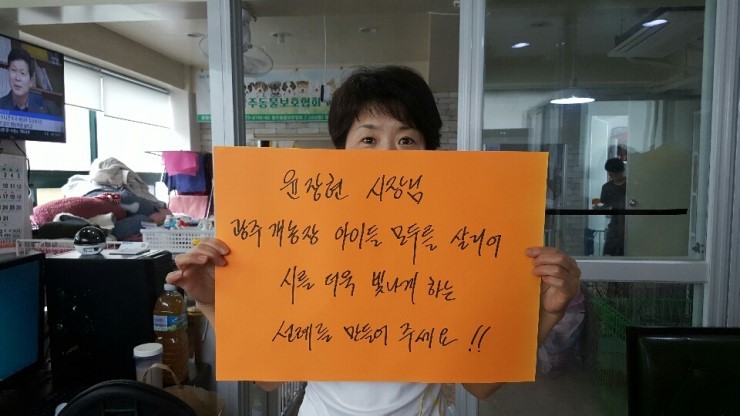 주동물보호협회
윤장현 시장님
광주 개농장 아이들 모두를 살리어
시를 더욱 빛나게 하는
선례를 만들어 주세요 !!